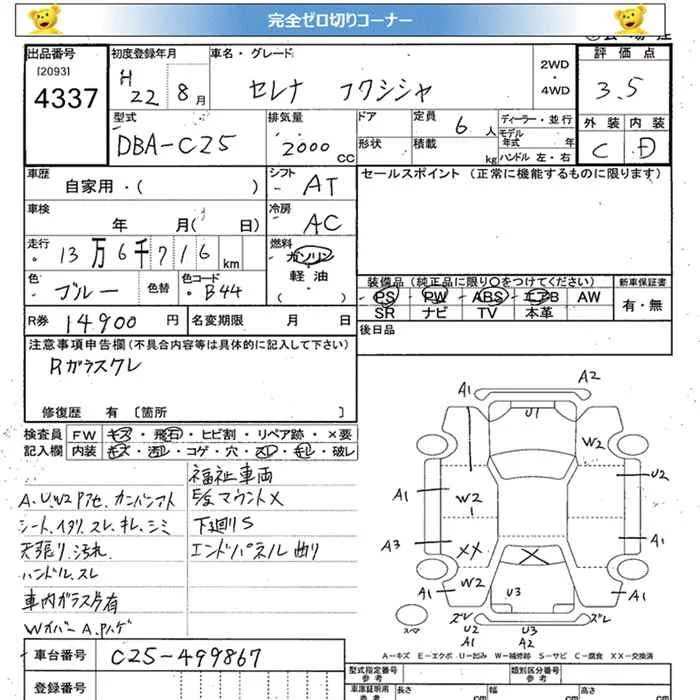 完全ゼロ切りコーナー
出品番号 初度登録年月 車名・グレード 2WD・4WD 評価点
[2093]
4337
H 22 8月 セレナ フクシシャ 3.5
型式 排気量 ドア 定員 6人 ディーラー・並行 外装 内装
モデル年式 年
DBA-C25 2000cc 形状 積載 kg ハンドル 左・右 C D
車歴 シフト セールスポイント (正常に機能するものに限ります)
自家用・( ) AT
車検 冷房
年 月( 日) AC
走行 13万6千716km 燃料 ガソリン
軽油
( )
色 ブルー 色替 色コード B44
装備品(純正品に限り○をつけてください) 新車保証書
PS PW ABS エアB AW 有・無
SR ナビ TV 本革
R券 14900円 名変期限 月 日 後日品
注意事項申告欄(不具合内容等は具体的に記入して下さい)
Rガラスクレ
修復歴 有 〔箇所 〕
検査員 FW キズ・飛石・ヒビ割・リペア跡・×要
記入欄 内装 キズ・汚レ・コゲ・穴・スレ・キレ・破レ
福祉車両
A.U.W2
シート、イタリ、スレ、キレ、シミ 下廻りS
天張り汚れ エンドパネル曲り
ハンドル.スレ
車内ガラスク有
Wカバー A.Pハゲ
A1 A2
U1
W2
U2
A1 W2 A1
A3 XX A1
W2
A1 U3 A1
スペア ズレ ズレ
U2 U3
A1 A2
A=キズ E=エクボ U=凹み W=補修跡 S=サビ C=腐食 XX=交換済
車台番号 C25-499867
登録番号
型式指定番号 参考 類別区分番号 参考
車庫証明用 参考 長さ cm 幅 cm 高さ cm